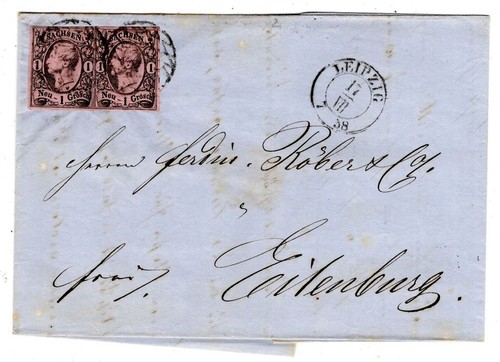 SACHSEN SACHSEN
1 1 1 1
Neu - 1 Grosch. Neu - 1 Grosch.
LEIPZIG
17
III
58
Herren Ferdin. Röber & Co.
Eilenburg.